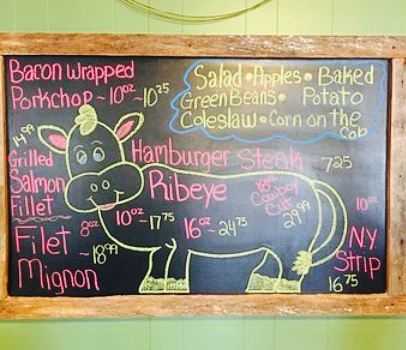 Bacon Wrapped
Porkchop ~ 10oz ~ 10 25
Salad • Apples • Baked
Green Beans • Potato
Coleslaw • Corn on the
Cob
14.99
Grilled
Salmon
Fillet
Hamburger Steak ~ 7 25
Ribeye
10oz ~ 17 75
16oz ~ 24 75
18oz
Cowboy
Cut
29 99
Filet 8oz ~ 18 99
Mignon
10oz
NY
Strip
16 75